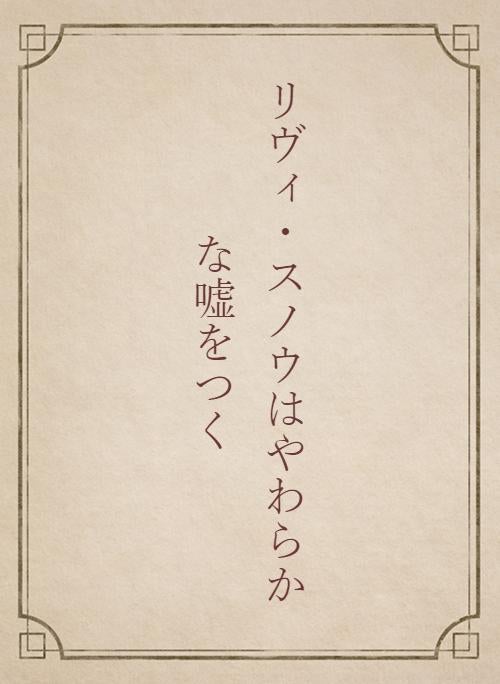 リヴィ・スノウはやわらか
な嘘をつく